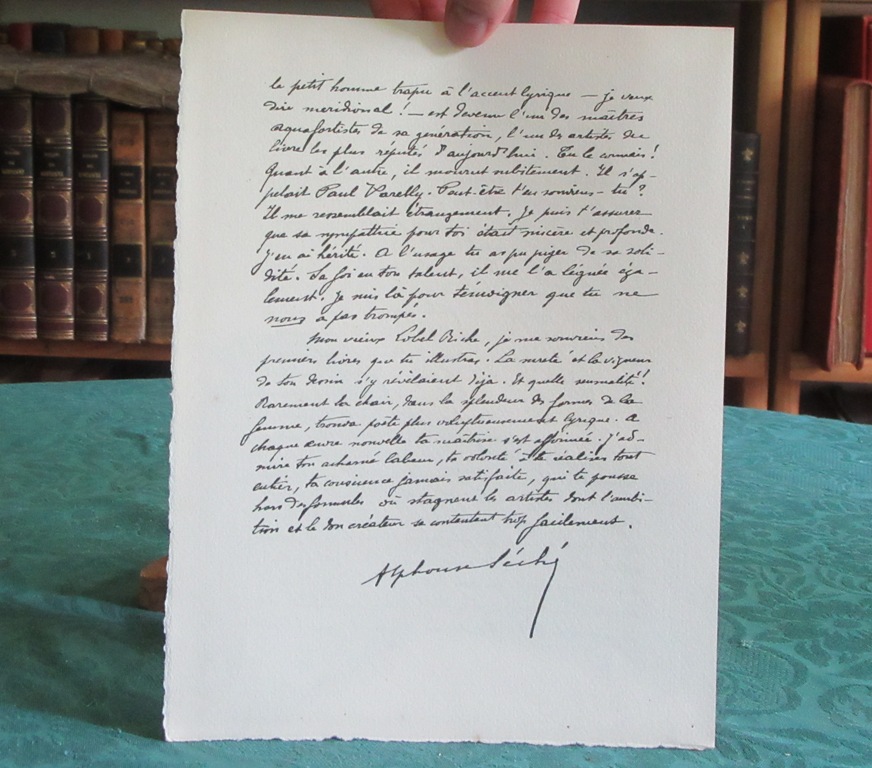 le petit homme trapu à l'accent lyrique — je veux
dire meridional ! — est devenu l'un des maîtres
aquafortistes de sa génération, l'un des artistes du
livre les plus réputés d'aujourd'hui. Tu le connais !
Quant à l'autre, il mourut subitement. Il s'ap-
pelait Paul Varelly. Peut-être t'en souviens-tu ?
Il me ressemblait étrangement. Je puis t'assurer
que sa sympathie pour toi était sincère et profonde.
J'en ai hérité. A l'usage tu as pu juger de sa soli-
dité. Sa foi en ton talent, il me l'a léguée éga-
lement. Je suis là pour témoigner que tu ne
nous a pas trompés.
Mon vieux Lobel Riche, je me souviens des
premiers livres que tu illustras. La sureté et la vigueur
de ton dessin s'y révélaient déja. Et quelle sensualité !
Rarement la chair, dans la splendeur des formes de la
femme, trouva poète plus voluptueusement lyrique. A
chaque œuvre nouvelle ta maîtrise s'est affirmée. J'ad-
mire ton acharné labeur, ta volonté à te réaliser tout
entier, ta conscience jamais satisfaite, qui te pousse
hors des formules où stagnent les artistes dont l'ambi-
tion et le don créateur se contentent trop facilement.
Alphonse Séché